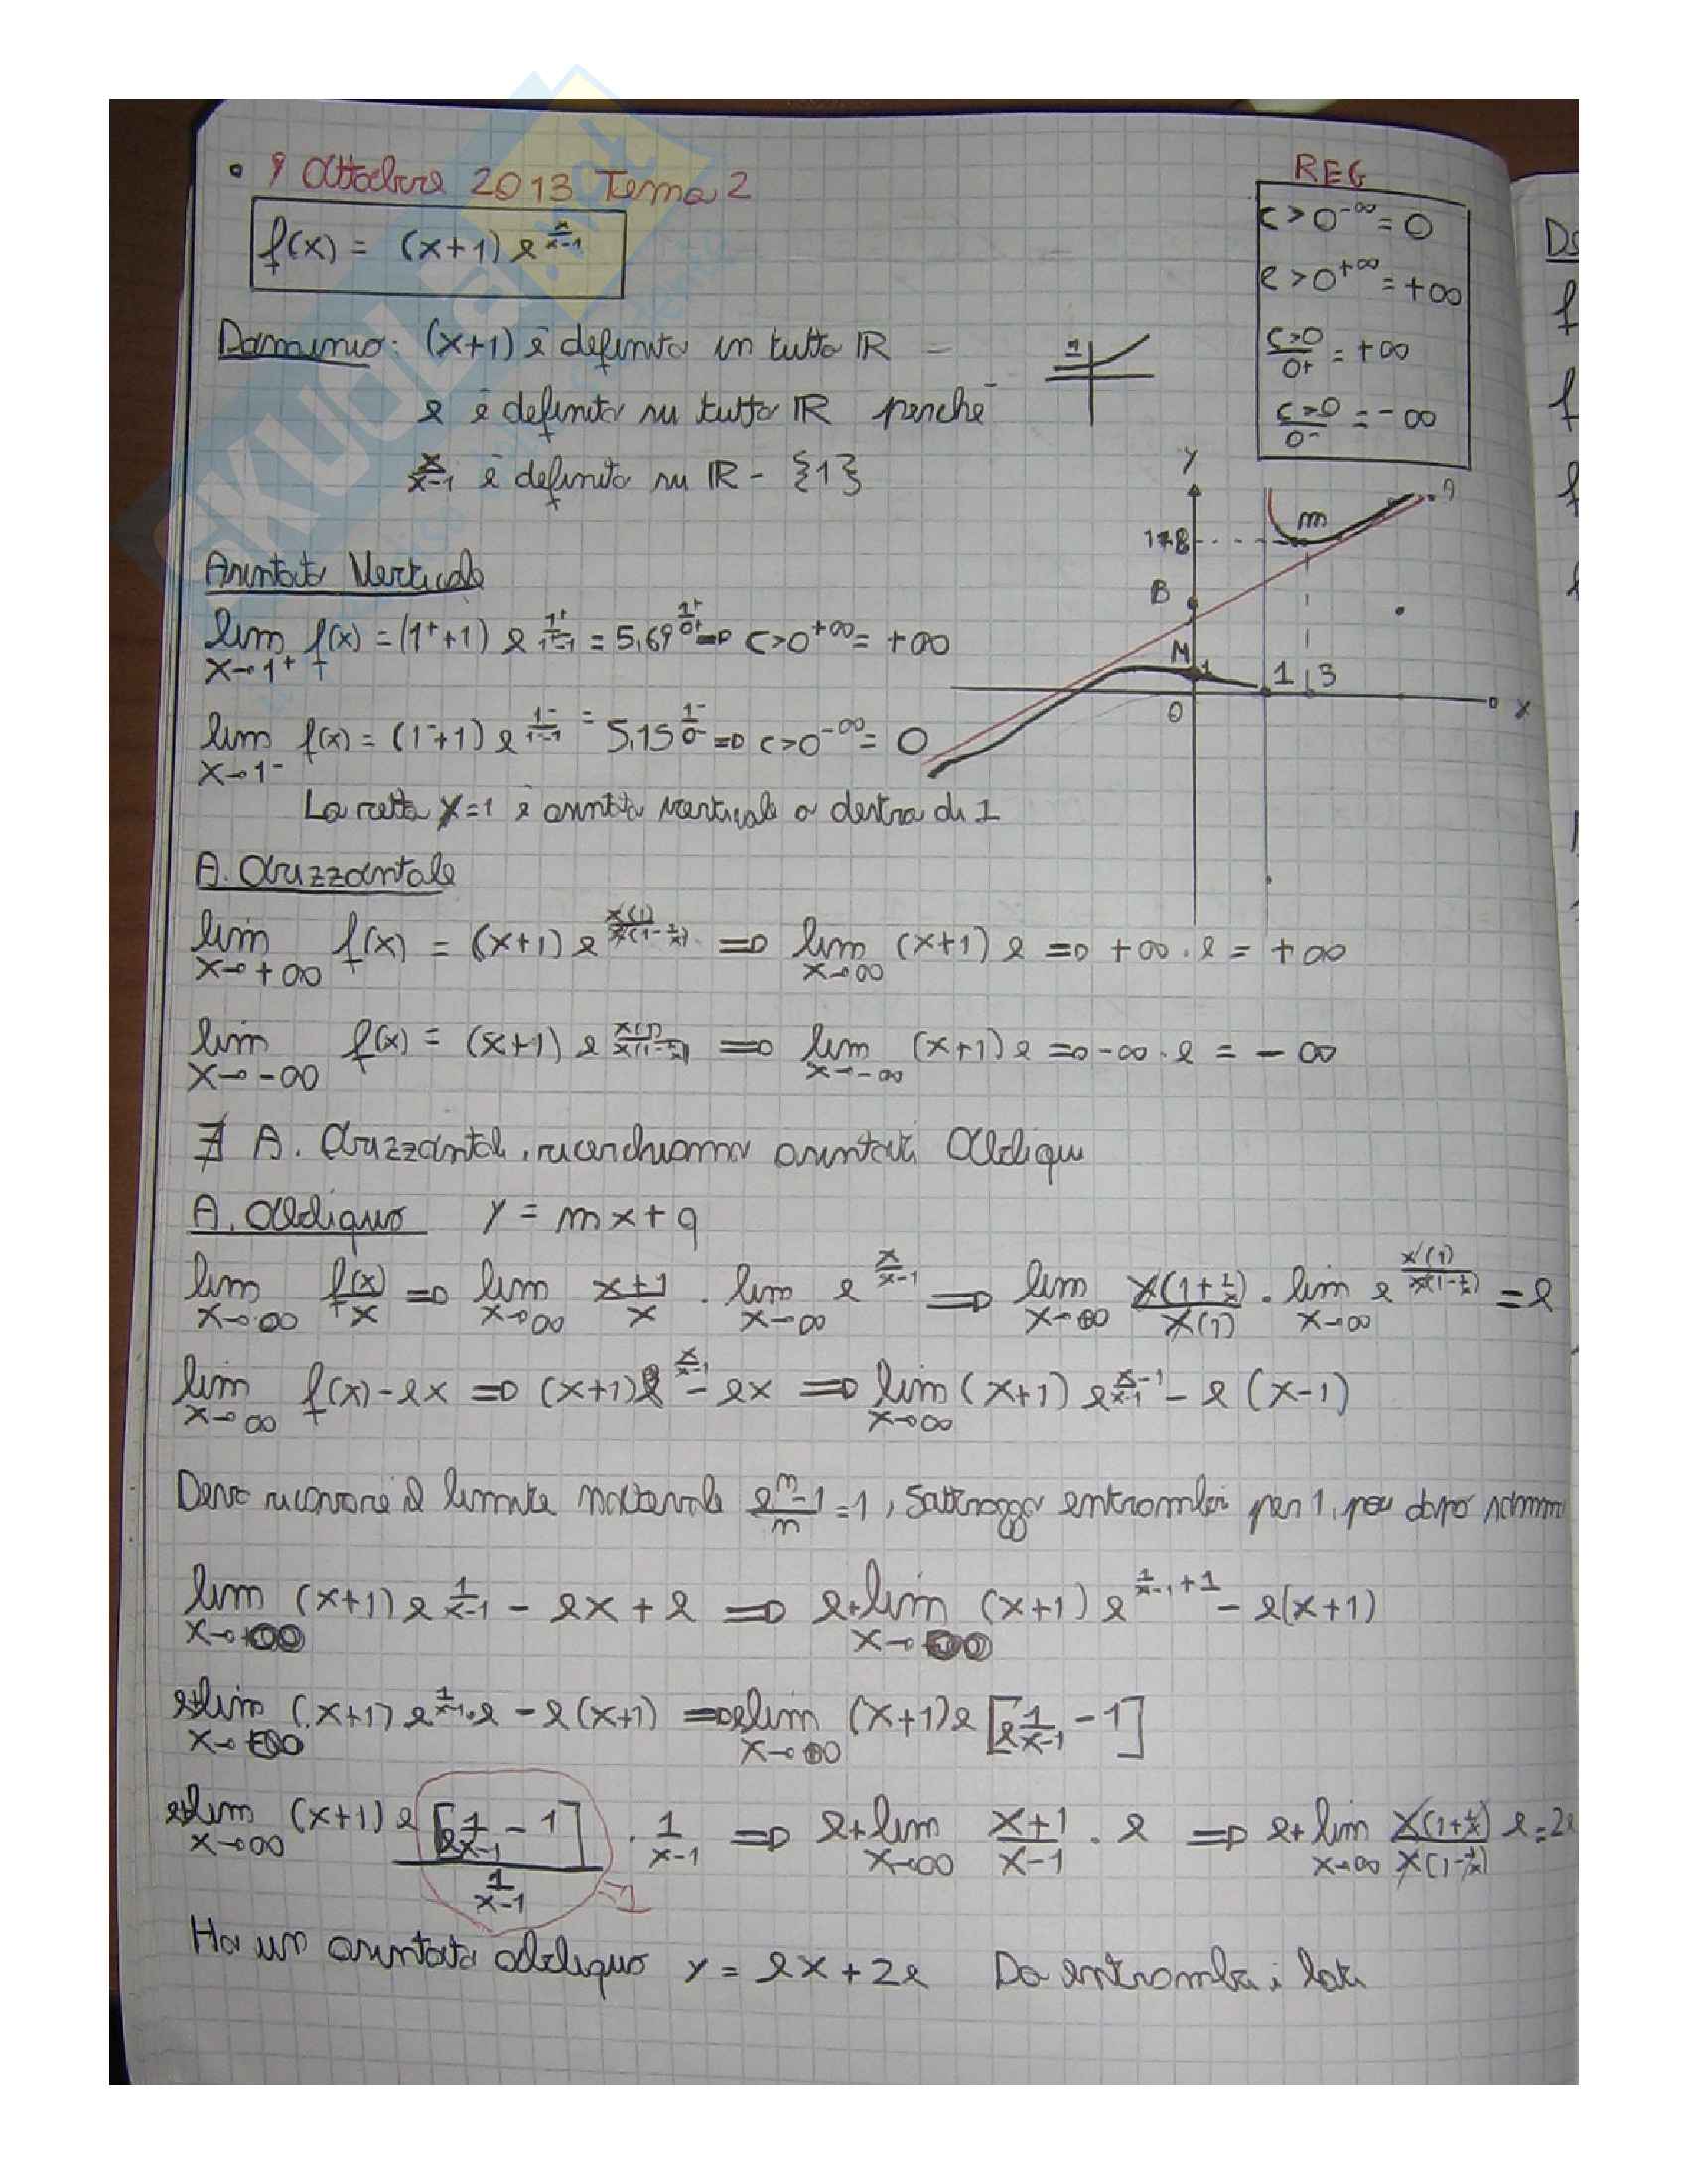 • 9 Ottobre 2013 Tema 2
f(x) = (x+1) e^{x/(x-1)}
REG
c>0^{-∞} = 0
c>0^{+∞} = +∞
c>0/0+ = +∞
c>0/0- = -∞
Dominio: (x+1) è definito in tutto IR
e è definito su tutto IR perchè
x/(x-1) è definito su IR - {1}
1
Y
m
B
M
1
1 3
0
x
Asintoto Verticale
lim x→1+ f(x) = (1+ +1) e^{1+/(1+-1)} = 5,69^{1+/0+} ⇒ c>0^{+∞} = +∞
lim x→1- f(x) = (1-+1) e^{1-/(1--1)} = 5,15^{1-/0-} ⇒ c>0^{-∞} = 0
La retta x=1 è asintoto verticale a destra di 1
A. Orizzontale
lim x→+∞ f(x) = (x+1) e^{x(1)/x(1-1/x)} ⇒ lim x→∞ (x+1) e ⇒ +∞ · e = +∞
lim x→-∞ f(x) = (x+1) e^{x(1)/x(1-1/x)} ⇒ lim x→-∞ (x+1) e ⇒ -∞ · e = -∞
∄ A. Orizzontali, ricerchiamo asintoti Obliqui
A. Obliquo y = mx+q
lim x→∞ f(x)/x ⇒ lim x→∞ (x+1)/x · lim x→∞ e^{x/(x-1)} ⇒ lim x→∞ x(1+1/x)/x(1) · lim x→∞ e^{x(1)/x(1-1/x)} = e
lim x→∞ f(x) - ex ⇒ (x+1)e^{x/(x-1)} - ex ⇒ lim x→∞ (x+1) e^{x/(x-1) -1} - e (x-1)
Devo ricavare il limite notevole (e^n -1)/n = 1, Sottraggo entrambi per 1, poi dopo
lim x→∞ (x+1) e^{1/(x-1)} - ex + e ⇒ e+lim x→∞ (x+1) e^{1/(x-1) +1} - e(x+1)
e+lim x→∞ (x+1) e^{1/(x-1)}·e - e(x+1) ⇒ e lim x→∞ (x+1)e [e^{1/(x-1)} - 1]
e+lim x→∞ (x+1) e [e^{1/(x-1)} - 1] / (1/(x-1)) · 1/(x-1) ⇒ e+lim x→∞ (x+1)/(x-1) · e ⇒ e+ lim x→∞ x(1+1/x)/x(1-1/x) e = 2e
=1
Ha un asintoto obliquo y = ex + 2e Da entrambi i lati